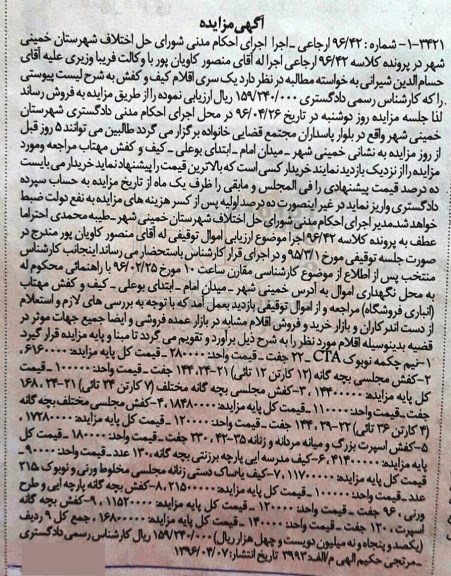 آگهی مزایده
۱-۳۴۲۱- شماره: ۹۶/۴۲ ارجاعی - اجرا اجرای احکام مدنی شورای حل اختلاف شهرستان خمینی
شهر در پرونده کلاسه ۹۶/۴۲ ارجاعی اجرا له آقای منصور کاویان پور با وکالت فریبا وزیری علیه آقای
حسام‌الدین شیرانی به خواسته مطالبه در نظر دارد یک سری اقلام کیف و کفش به شرح لیست پیوستی
را که کارشناس رسمی دادگستری ۱۵۹/۲۴۰/۰۰۰ ریال ارزیابی نموده را از طریق مزایده به فروش رساند
لذا جلسه مزایده روز دوشنبه در تاریخ ۹۶/۰۴/۲۶ در محل اجرای احکام مدنی دادگستری شهرستان
خمینی شهر واقع در بلوار پاسداران مجتمع قضایی خانواده برگزار می گردد طالبین می توانند ۵ روز قبل
از روز مزایده به نشانی خمینی شهر - میدان امام - ابتدای بوعلی - کیف و کفش مهتاب مراجعه ومورد
مزایده را از نزدیک بازدید نمایند خریدار کسی است که بالاترین قیمت را پیشنهاد نماید خریدار می بایست
ده درصد قیمت پیشنهادی را فی المجلس و مابقی را ظرف یک ماه از تاریخ مزایده به حساب سپرده
دادگستری واریز نماید در غیر اینصورت ده درصد اولیه پس از کسر هزینه های مزایده به نفع دولت ضبط
خواهد شد.مدیر اجرای احکام مدنی شورای حل اختلاف شهرستان خمینی شهر - طیبه محمدی احتراما
عطف به پرونده کلاسه ۹۶/۴۲ اجرا موضوع ارزیابی اموال توقیفی له آقای منصور کاویان پور مندرج در
صورت جلسه توقیفی مورخ ۹۵/۳/۱ و در اجرای قرار کارشناس باستحضار می رساند اینجانب کارشناس
منتخب پس از اطلاع از موضوع کارشناسی مقارن ساعت ۱۰ مورخ ۹۶/۰۲/۲۵ با راهنمائی محکوم له
به محل نگهداری اموال به آدرس خمینی شهر - میدان امام - ابتدای بوعلی - کیف و کفش مهتاب
(انباری فروشگاه) مراجعه و از اموال توقیفی بازدید بعمل آمد که با توجه به بررسی های لازم و استعلام
از دست اندرکاران و بازار خرید و فروش اقلام مشابه در بازار عمده فروشی و ایضا جمیع جهات موثر در
قضیه بدینوسیله اقلام مورد نظر را به شرح ذیل برآورد و تقویم می گردد تا مبنا و پایه مزایده قرار گیرد
۱-نیم چکمه نوبوک CTA - ۲۲ جفت - قیمت واحد: ۲۸۰۰۰۰ - قیمت کل پایه مزایده: ۶۱۶۰۰۰۰،
۲-کفش مجلسی بچه گانه (۱۲ کارتن ۱۲ تائی) ۲۱-۲۴، ۱۴۴ جفت - قیمت واحد: ۱۰۰۰۰۰ - قیمت
کل پایه مزایده: ۱۴۴۰۰۰۰۰، ۳-کفش مجلسی بچه گانه مختلف (۷ کارتن ۲۴ تائی) ۲۱-۲۴، ۱۶۸
جفت - قیمت واحد: ۱۱۰۰۰۰ - قیمت کل پایه مزایده: ۱۸۴۸۰۰۰۰، ۴-کفش مجلسی مختلف بچه گانه
(۴ کارتن ۳۶ تائی) ۲۲-۲۹، ۱۴۴ جفت - قیمت واحد: ۱۲۰۰۰۰ - قیمت کل پایه مزایده: ۱۷۲۸۰۰۰۰،
۵-کفش اسپرت بزرگ و میانه مردانه و زنانه ۳۵-۴۲، ۲۳۰ جفت - قیمت واحد: ۱۸۰۰۰۰ - قیمت کل
پایه مزایده: ۴۱۴۰۰۰۰۰، ۶-کیف مدرسه ایی پارچه برزنتی بچه گانه، ۱۳۰ عدد - قیمت واحد: ۹۰۰۰۰ -
قیمت کل پایه مزایده: ۱۱۷۰۰۰۰۰، ۷-کیف پاساک دستی زنانه مجلسی مخلوط ورنی و نوبوک، ۲۱۵
عدد - قیمت واحد: ۱۰۰۰۰۰ - قیمت کل پایه مزایده: ۲۱۵۰۰۰۰۰، ۸-کفش بچه گانه پارچه ایی و طرح
ورنی، ۹۶ جفت - قیمت واحد: ۱۲۰۰۰۰ - قیمت کل پایه مزایده: ۱۱۵۲۰۰۰۰، ۹-کفش بچه گانه
اسپرت، ۱۲۰ جفت - قیمت واحد: ۱۴۰۰۰۰ - قیمت کل پایه مزایده: ۱۶۸۰۰۰۰۰، جمع کل ۹ ردیف
(یکصد و پنجاه و نه میلیون دویست و چهل هزار ریال) ۱۵۹/۲۴۰/۰۰۰ ریال کارشناس رسمی دادگستری
- مرتجی حکیم الهی م/الف:۳۹۹۳ تاریخ انتشار:۱۳۹۶/۰۴/۰۷